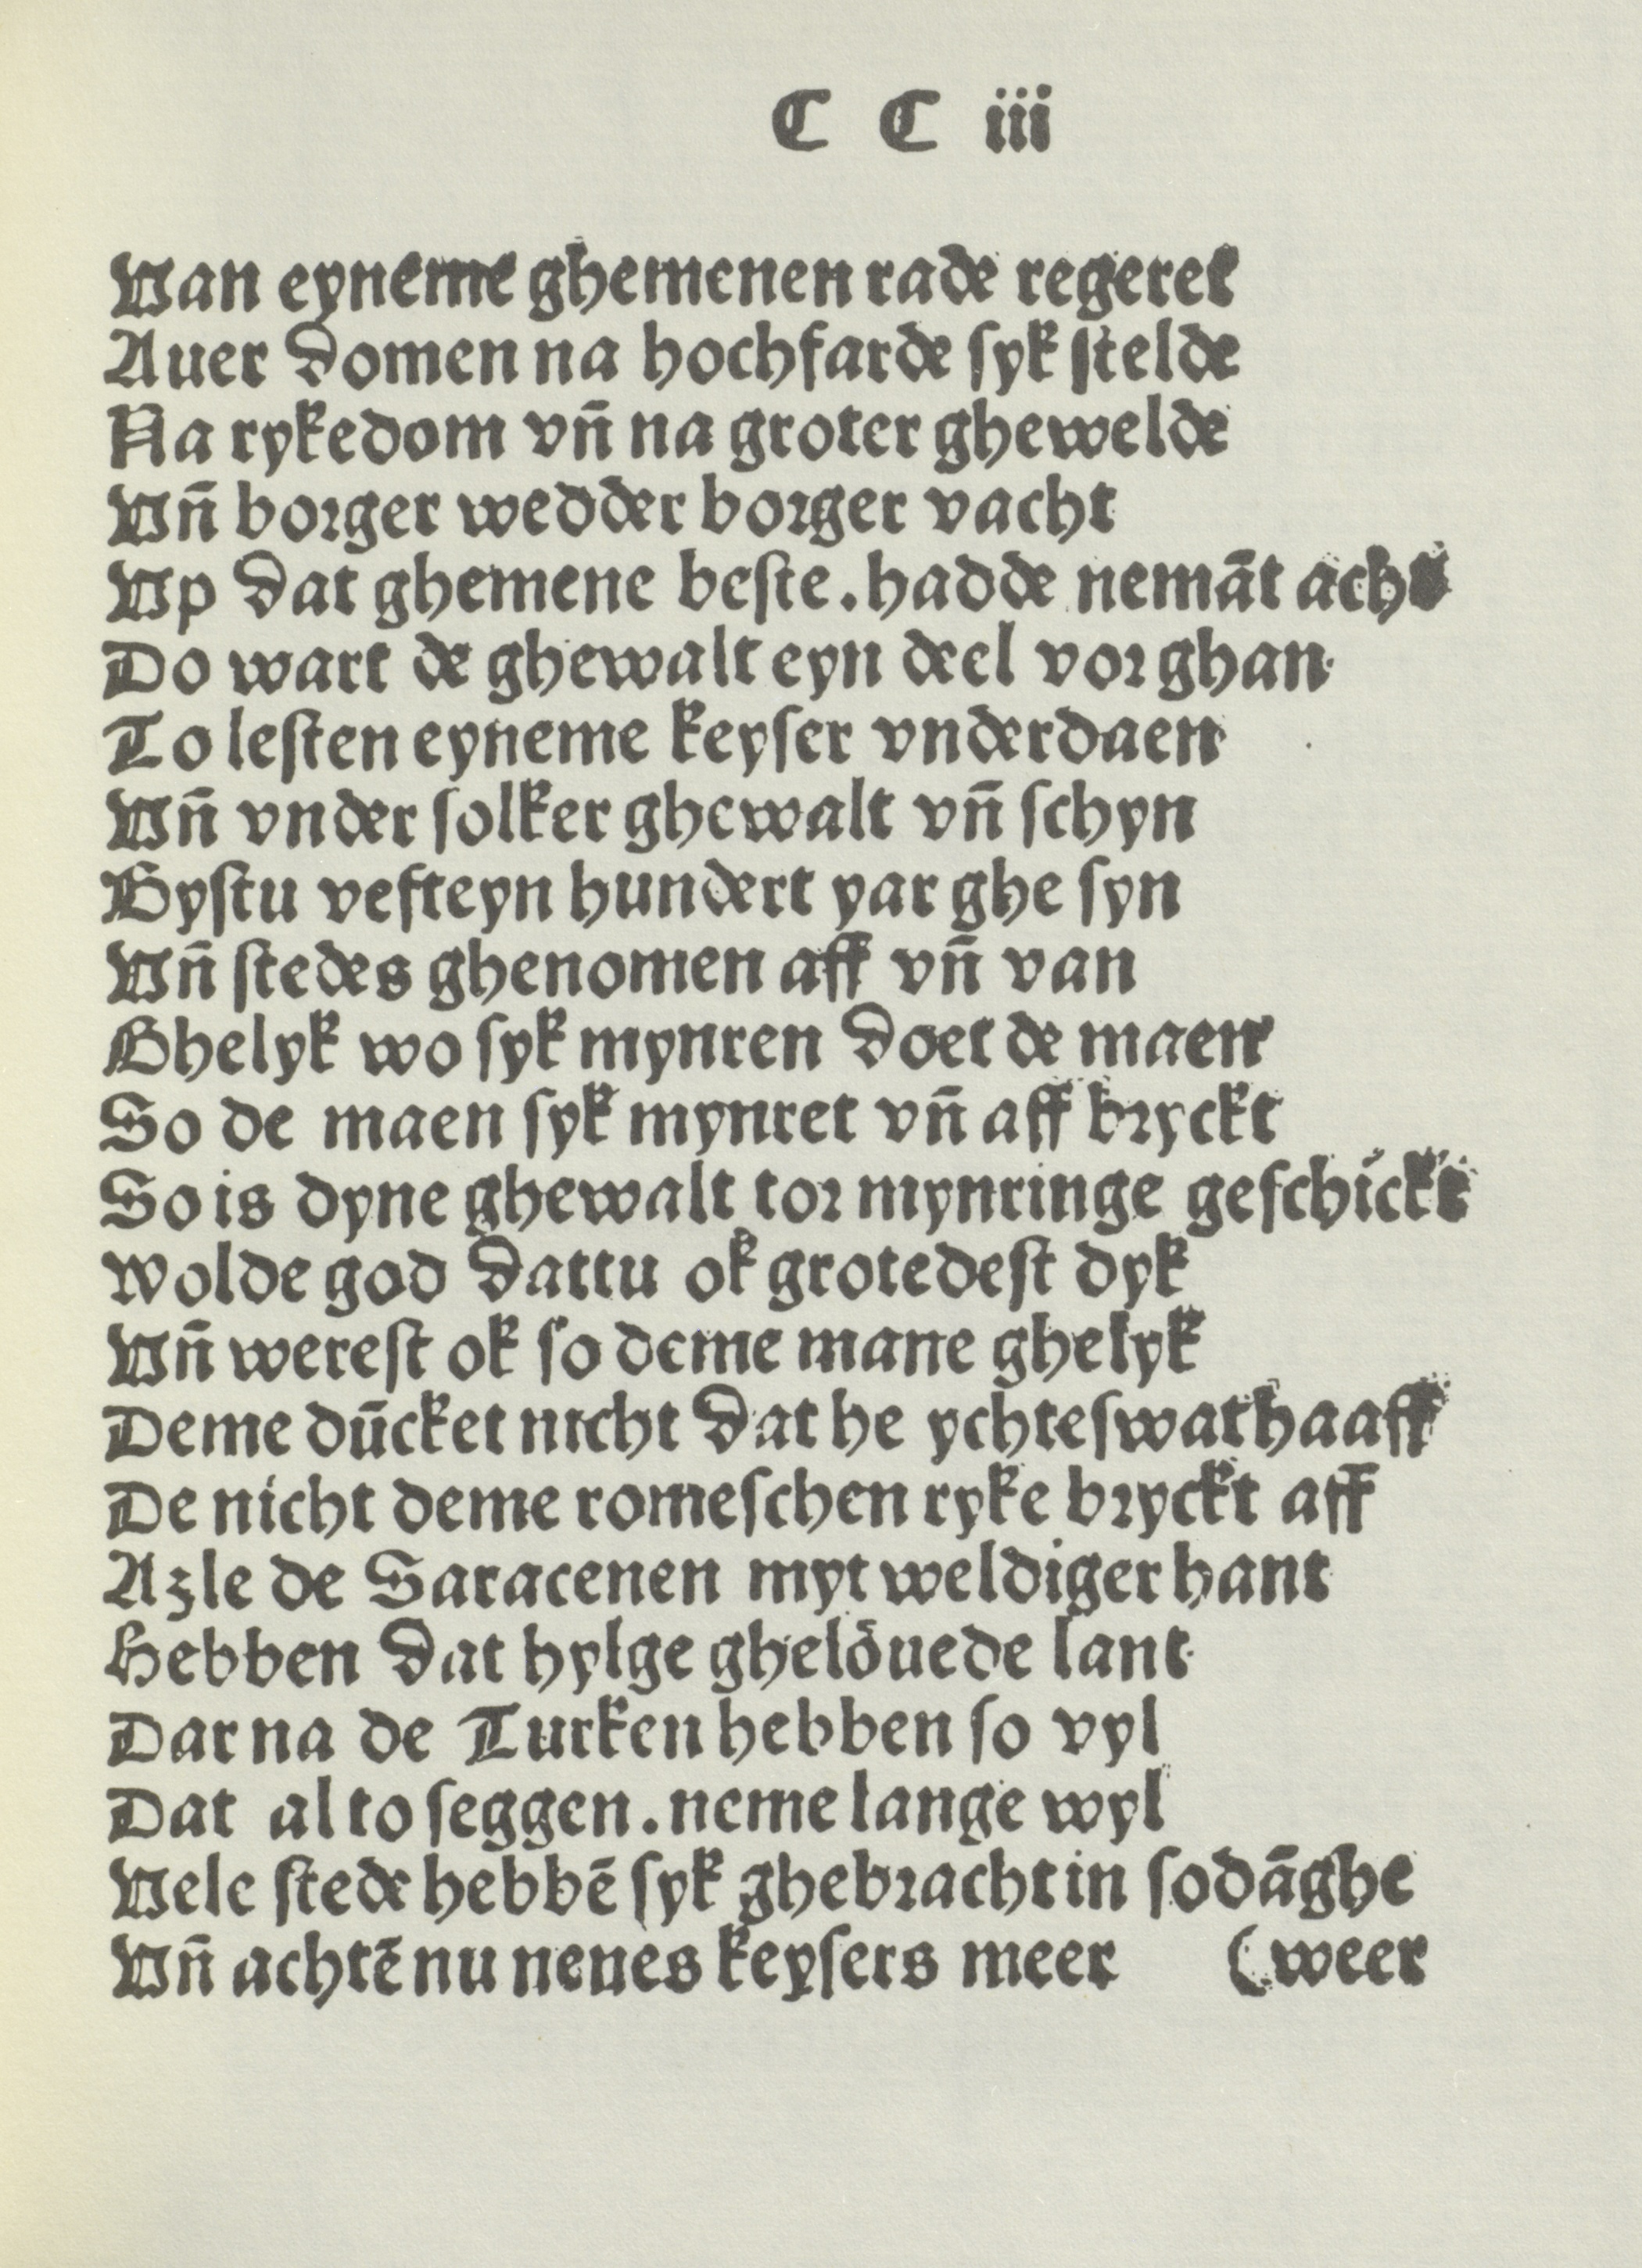 C C iii
Van eyneme ghemenen rade regeret
Auer domen na hochfarde ſyk ſtelde
Na rykedom vñ na groter ghewelde
Vñ borger wedder borger vacht
Vp dat ghemene beſte. hadde nemāt acht
Do wart de ghewalt eyn deel vor ghan
To leſten eyneme keyſer vnderdaen
Vñ vnder ſolker ghewalt vñ ſchyn
Byſtu vefteyn hundert yar ghe ſyn
Vñ ſtedes ghenomen aff vñ van
Ghelyk wo ſyk mynren doet de maen
So de maen ſyk mynret vñ aff bryckt
So is dyne ghewalt tor mynringe geſchickt
Wolde god dattu ok grotedeſt dyk
Vñ wereſt ok ſo deme mane ghelyk
Deme dūcket nicht dat he ychteſwat haaff
De nicht deme romeſchen ryke bryckt aff
Azle de Saracenen myt weldiger hant
Hebben dat hylge ghelōuede lant
Dar na de Turken hebben ſo vyl
Dat al to ſeggen. neme lange wyl
Vele ſtede hebbē ſyk ghebracht in ſodāghe
Vñ achtē nu nenes keyſers meer (weer